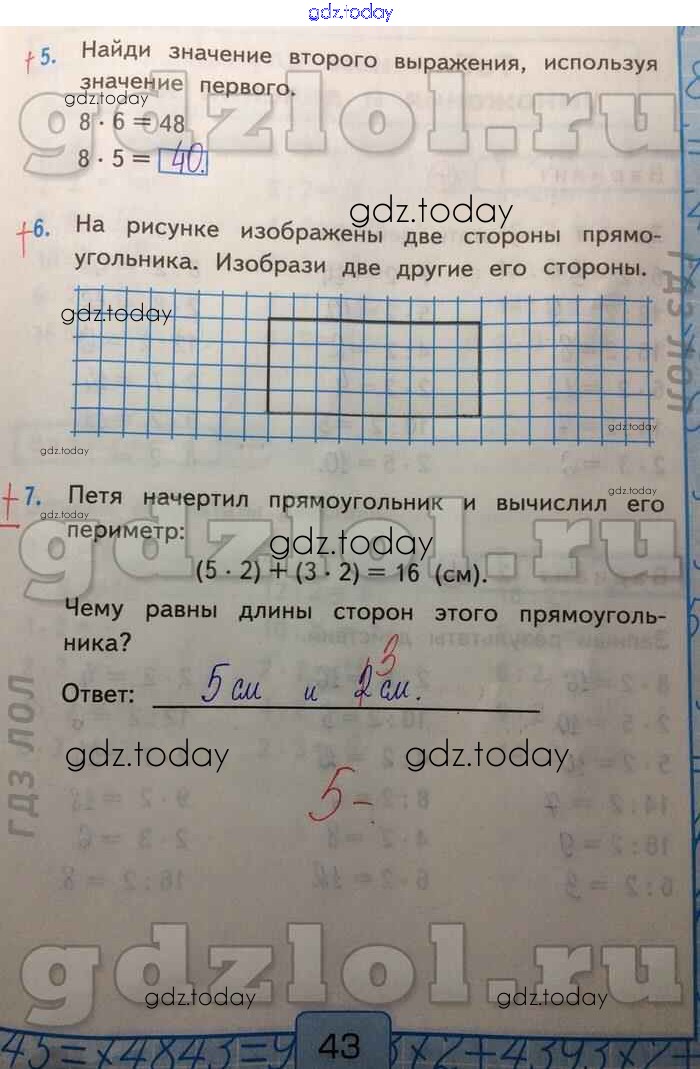 gdz.today
+ 5. Найди значение второго выражения, используя
значение первого.
gdz.today
gdzlol.ru
8 · 6 = 48
8 · 5 = 40.
gdz.today
+ 6. На рисунке изображены две стороны прямо-
угольника. Изобрази две другие его стороны.
gdz.today
ГДЗ ЛОЛ
gdz.today
gdz.today
gdz.today
+ 7. Петя начертил прямоугольник и вычислил его
gdz.today
периметр:
gdzlol.ru
gdz.today
(5 · 2) + (3 · 2) = 16 (см).
Чему равны длины сторон этого прямоуголь-
ника?
3
Ответ: 5 см и 2 см.
ГДЗ ЛОЛ
gdz.today gdz.today
5-
gdzlol.ru
gdz.today gdz.today gdz.today
43